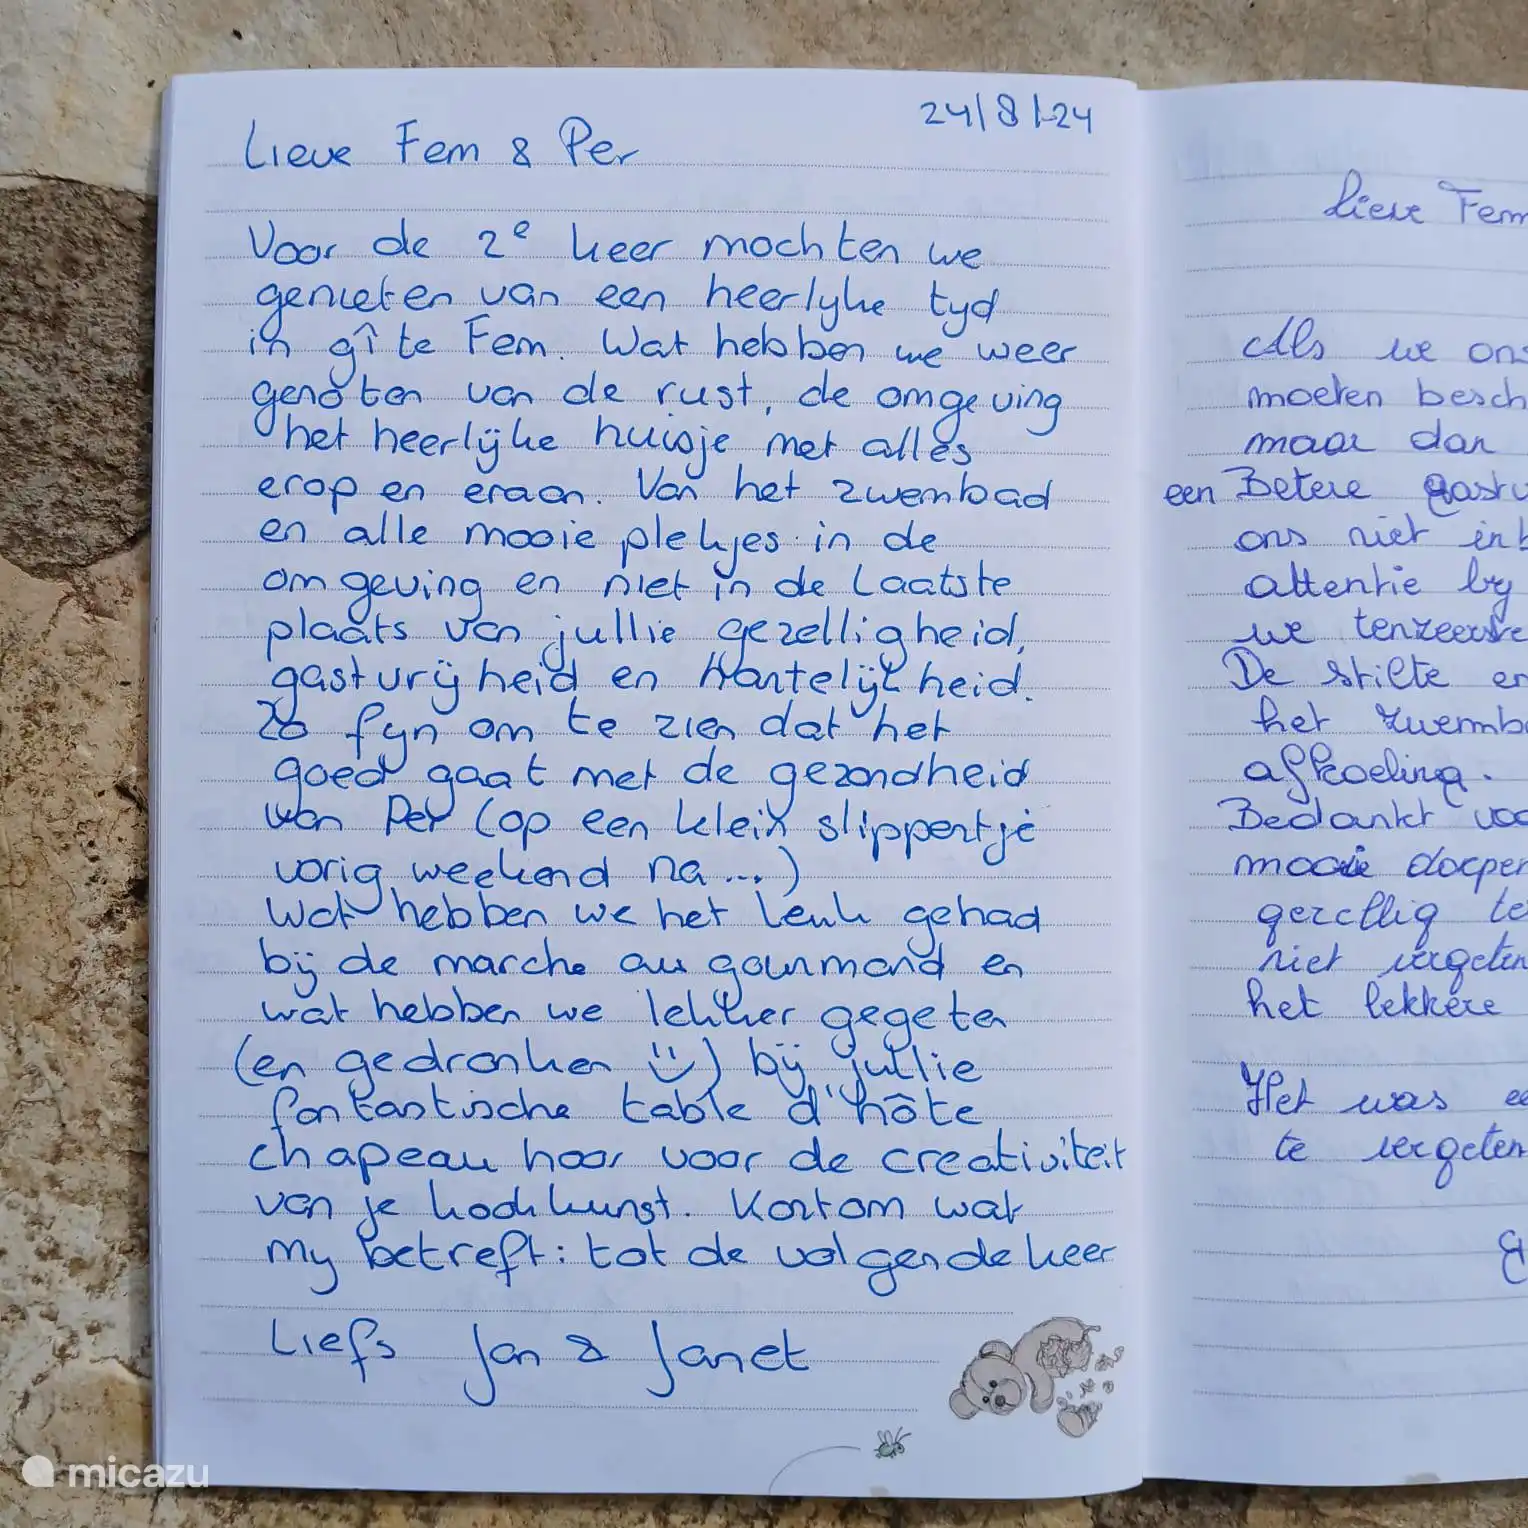 24/8/-24
Lieve Fem & Per
Voor de 2e keer mochten we
genieten van een heerlyke tyd
in gîte Fem. Wat hebben we weer
genoten van de rust, de omgeving
het heerlijke huisje met alles
erop en eraan. Van het zwembad
en alle mooie plekjes in de
omgeving en niet in de laatste
plaats van jullie gezelligheid,
gastvrijheid en Hartelijkheid.
Zo fyn om te zien dat het
goed gaat met de gezondheid
van Per (op een klein slippertje
vorig weekend na...)
Wat hebben we het leuk gehad
bij de marche au gourmand en
wat hebben we lekker gegeten
(en gedronken ☺) bij jullie
fantastische table d'hôte
chapeau hoor voor de creativiteit
van je kookkunst. Kortom wat
my betreft: tot de volgende keer
Liefs Jan & Janet
Lieve Fem
Als we ons
moeten besch
maar dan
een Betere gastv
ons niet
attentie by
we tenzeerste
De stilte en
het zwemb
afkoeling.
Bedankt voo
mooie dorpen
gezellig te
niet vergeten
het lekkere
Het was ee
te vergeten
micazu